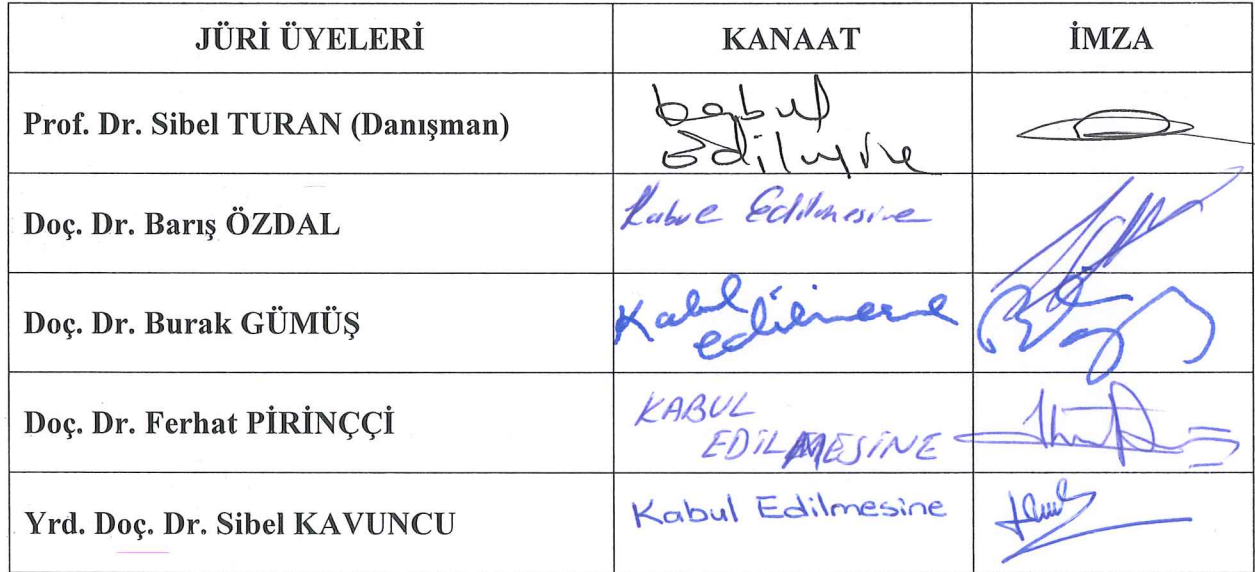 JÜRİ ÜYELERİ KANAAT İMZA
Prof. Dr. Sibel TURAN (Danışman) kabul
edilmesine
Doç. Dr. Barış ÖZDAL Kabul Edilmesine
Doç. Dr. Burak GÜMÜŞ Kabul
edilmesine
Doç. Dr. Ferhat PİRİNÇÇİ KABUL
EDİLMESİNE
Yrd. Doç. Dr. Sibel KAVUNCU Kabul Edilmesine